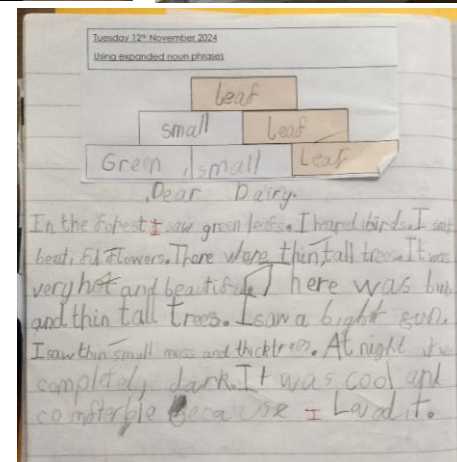 Tuesday 12th November 2024
Using expanded noun phrases
leaf
small leaf
Green , small Leaf
Dear Dairy.
In the forest I saw green leafs. I heared birds. I
beati ful flowers. There were thin, tall trees. It was
very hot and beautiful. There was
and thin tall trees. I saw a bright sun.
I saw thin small moss and thick trees. At night it
completely dark. It was cool and
comfterble because I Loved it.